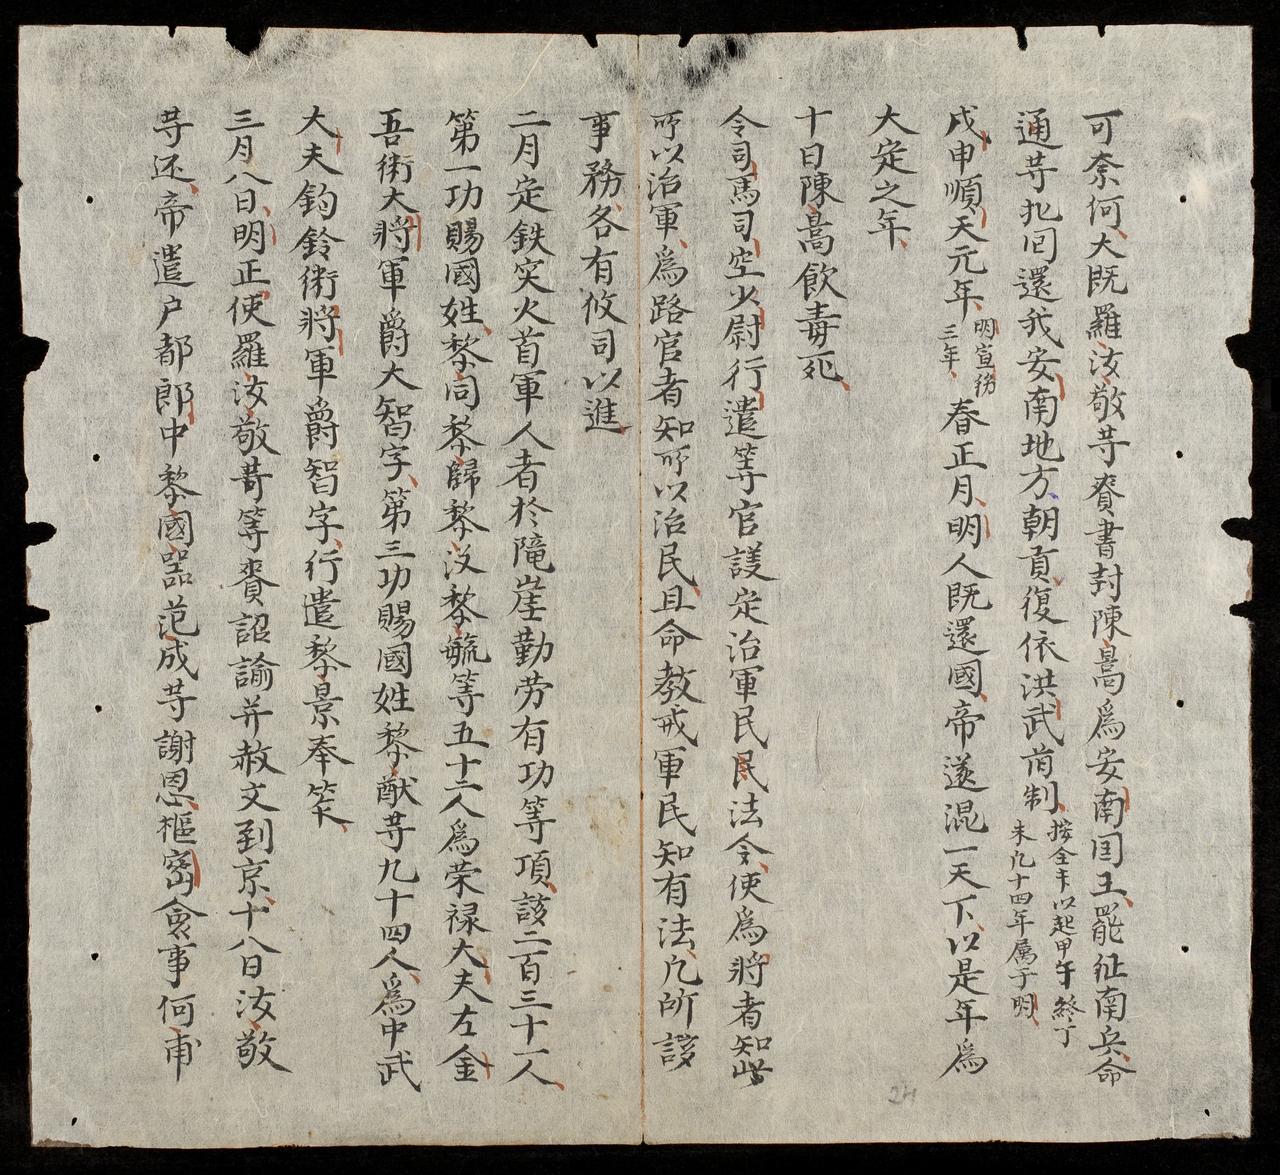 可奈何大既羅汝敬䓁賫書封陳暠爲安南囯王罷征南兵命
通䓁扎囘還我安南地方朝貢復依洪武旹制按全卡以起甲午終丁
未凡十四年属于明
戊申順天元年明宣德
三年春正月明人既還國帝遂混一天下以是年爲
大定之年
十日陳暠飲毒死
令司馬司空少尉行遣等官議定治軍民民法令使爲將者知此
所以治軍爲路官者知所以治民且命教戒軍民知有法凡所該
事務各有攸司以進
二月定鉄突火首軍人者於隴崖勤劳有功等項該二百三十一人
第一功賜國姓黎同黎歸黎汲黎毓等五十二人爲荣禄大夫左金
吾衛大將軍爵大智字第三功賜國姓黎猷䓁九十四人爲中武
大夫鈎鈐衛將軍爵智字行遣黎景奉筞
三月八日明正使羅汝敬䓁等賫詔諭并赦文到京十八日汝敬
䓁还帝遣户都郎中黎國器范成䓁謝恩樞密僉事何甫